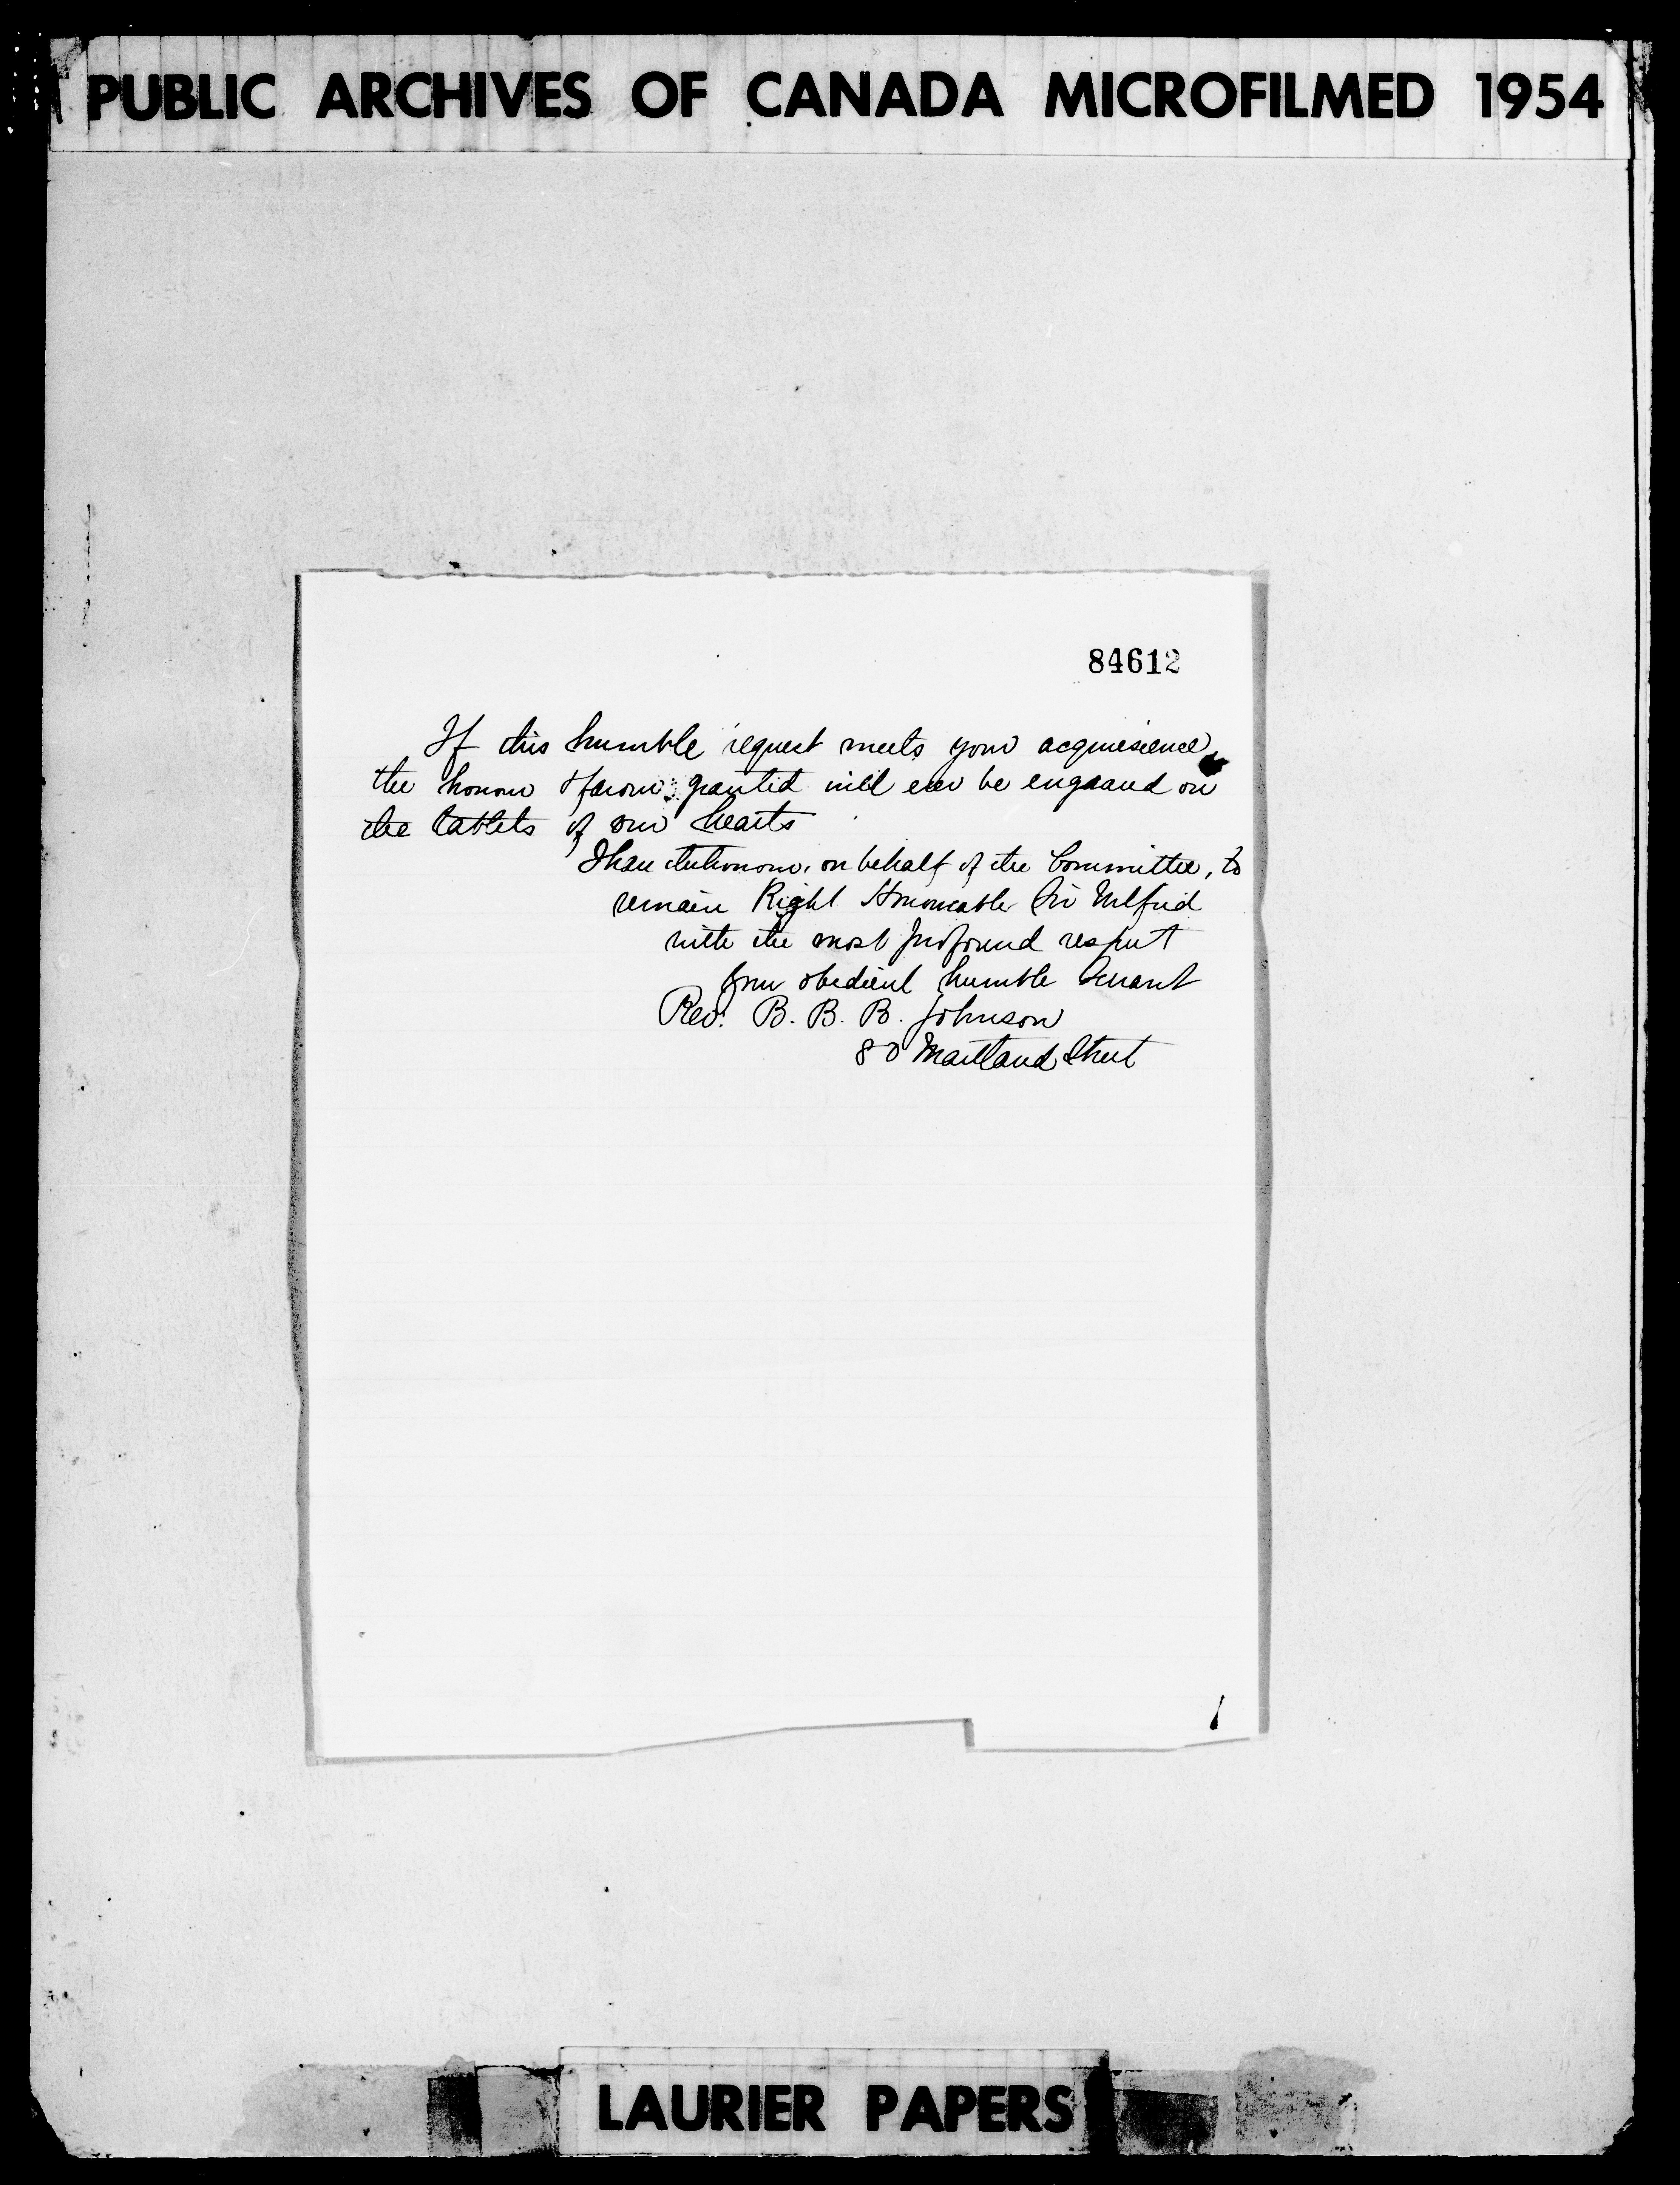 PUBLIC ARCHIVES OF CANADA MICROFILMED 1954
84612
If this humble request meets your acquiesence,
the honour & favour granted will ever be engraved on
the tablets of our hearts
I have the honour, on behalf of the Committee, to
remain Right Honourable Sir Wilfrid
with the most profound respect
Your obedient humble Servant
Rev. B. B. B. Johnson
80 Maitland Street
LAURIER PAPERS